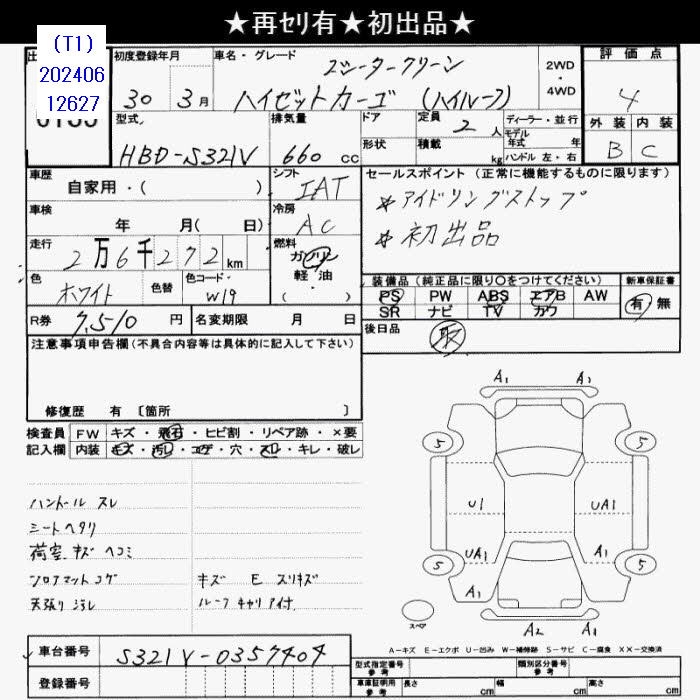 ★再セリ有★初出品★
(T1)
202406
12627
初度登録年月
30 3月
車名・グレード
ハイゼットカーゴ (ハイルーフ)
2WD
・
4WD
評価点
4
外装 内装
B C
型式
HBD-S321V
排気量
660 cc
ドア
形状
定員
2 人
積載
kg
ディーラー・並行
モデル年式 年
ハンドル 左・右
車歴
自家用・( )
シフト
IAT
セールスポイント (正常に機能するものに限ります)
＊アイドリングストップ
＊初出品
車検
年 月( 日)
冷房
AC
走行
2万6千272km
燃料
ガソリン
軽油
・
( )
色
ホワイト
色替
色コード・
W19
装備品 (純正品に限り○をつけてください)
PS PW ABS エアB AW
SR ナビ TV カワ
新車保証書
有 無
R券 7,510 円
名変期限 月 日
後日品
取
注意事項申告欄(不具合内容等は具体的に記入して下さい)
修復歴 有 〔箇所 〕
検査員
記入欄
FW キズ・飛石・ヒビ割・リペア跡・×要
内装 キズ・汚レ・コゲ・穴・スレ・キレ・破レ
ハンドル スレ
シートヘタリ
荷室 キズ ヘコミ
フロアマットコゲ
天張り汚レ
キズ E スリキズ
ルーフキャリア付
A1 A1
5 5
U1 UA1
UA1 A1
5 5
A1
A2 A1
スペア
A－キズ E－エクボ U－凹み W－補修跡 S－サビ C－腐食 XX－交換済
車台番号
S321V-0357404
登録番号
型式指定番号
参考
類別区分番号
参考
車庫証明用
参考
長さ cm
幅 cm
高さ cm